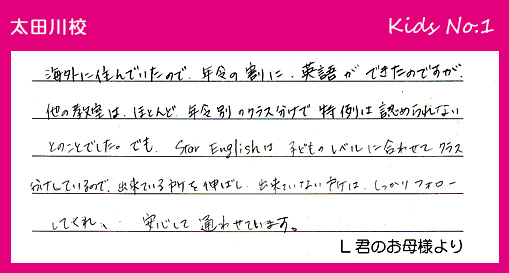 太田川校
Kids No.1
海外に住んでいたので、年令の割に、英語ができたのですが、
他の教室は、ほとんど、年令別のクラス分けで特例は認められない
とのことでした。でも、Star Englishは、子どものレベルに合わせてクラス
分けしているので、出来ている所を伸ばし、出来ていない所は、しっかりフォロー
してくれ、安心して通わせています。
L君のお母様より